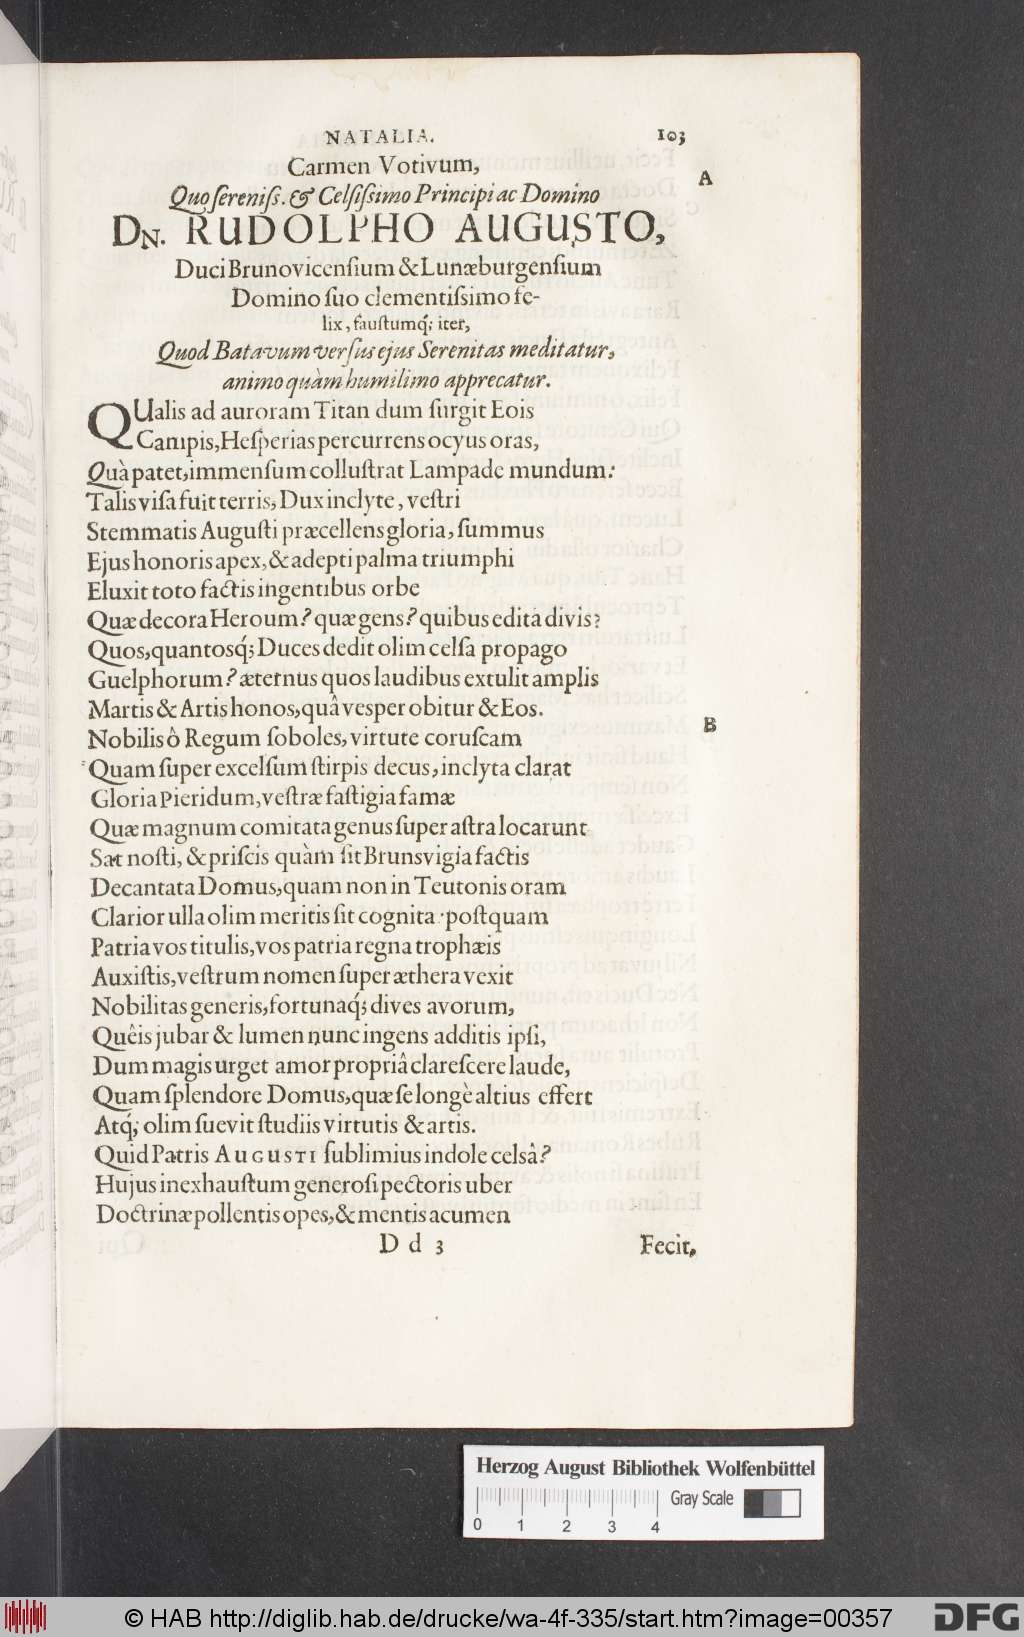 NATALIA. 103
Carmen Votivum,
A
Quo ſereniſs. & Celſiſsimo Principi ac Domino
DN. RUDOLPHO AUGUSTO,
Duci Brunovicenſium & Lunæburgenſium
Domino ſuo clementiſsimo fe-
lix, fauſtumq́; iter,
Quod Batavum verſus ejus Serenitas meditatur,
animo quàm humilimo apprecatur.
QUalis ad auroram Titan dum ſurgit Eois
Campis, Heſperias percurrens ocyus oras,
Quà patet, immenſum colluſtrat Lampade mundum:
Talis viſa fuit terris, Dux inclyte, veſtri
Stemmatis Auguſti præcellens gloria, ſummus
Ejus honoris apex, & adepti palma triumphi
Eluxit toto factis ingentibus orbe
Quæ decora Heroum? quæ gens? quibus edita divis?
Quos, quantosq́; Duces dedit olim celſa propago
Guelphorum? æternus quos laudibus extulit amplis
Martis & Artis honos, quâ vesper obitur & Eos.
B
Nobilis ô Regum ſoboles, virtute coruſcam
Quam ſuper excelſum ſtirpis decus, inclyta clarat
Gloria Pieridum, veſtræ faſtigia famæ
Quæ magnum comitata genus ſuper aſtra locarunt
Sat noſti, & priſcis quàm ſit Brunsvigia factis
Decantata Domus, quam non in Teutonis oram
Clarior ulla olim meritis ſit cognita · poſtquam
Patria vos titulis, vos patria regna trophæis
Auxiſtis, veſtrum nomen ſuper æthera vexit
Nobilitas generis, fortunaq́; dives avorum,
Quêis jubar & lumen nunc ingens additis ipſi,
Dum magis urget amor propriâ clareſcere laude,
Quam ſplendore Domus, quæ ſe longè altius effert
Atq́; olim ſuevit ſtudiis virtutis & artis.
Quid Patris AUGUSTI ſublimius indole celsâ?
Hujus inexhauſtum generoſi pectoris uber
Doctrinæ pollentis opes, & mentis acumen
D d 3 Fecit,
Herzog August Bibliothek Wolfenbüttel
Gray Scale
0 1 2 3 4
© HAB http://diglib.hab.de/drucke/wa-4f-335/start.htm?image=00357
DFG